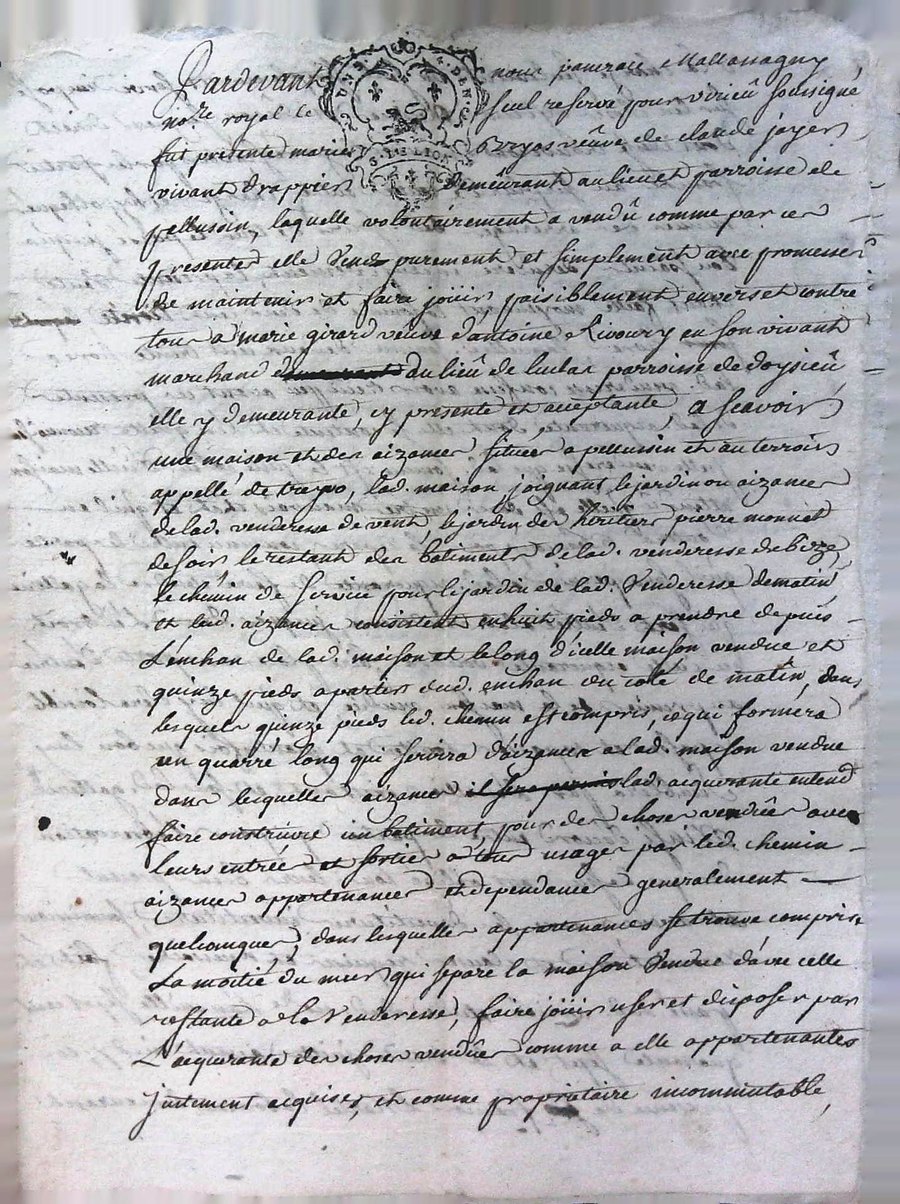 Pardevant nous pancrace Mallassagny
no.re royal le seul reservé pour virieû soussigné
fut presente marie veûve de claude jayer
vivant drappier demeûrant au lieu et parroisse de
pellussin, laquelle volontairement a vendû comme par ces
presentes elle vend purement et simplement avec promesse
de maintenir et faire joüir paisiblement envers et contre
tous a marie girard veuve d'antoine Rivoiry en son vivant
marchand du lieû de luclas parroisse de doysieû
elle y demeurante, cy presente et acceptante, a scavoir
une maison et des aizances situées a pellussin et au terroir
appellé de treyvo, lad. maison joignant le jardin ou aizances
de lad. venderesse de vent, le jardin des héritiers pierre monnet
de soir, le restant des batiments de lad. venderesse de bize,
le chemin de service pour le jardin de lad. Venderesse de matin
et lesd. aizances consistent en huit pieds a prendre depuis
L'enchan de lad. maison et le long d'icelle maison vendue et
quinze pieds a partir dud. enchan du coté de matin, dans
lesquels quinze pieds led. chemin est compris, ce qui formera
un quarré long qui servira d'aizances a lad. maison vendue
dans lesquelles aizances il sera permis lad. acquerante entend
faire construire un batiment, pour des choses vendües avec
leurs entrées et sorties a tous usages par led. chemin
aizances appartenances et dependances generalement
quelconques, dans lesquelles appartenances se trouve compris
La moitié du mur qui separe la maison Vendue d'avec celle
restante a la Venderesse, faire joüir user et disposer par
L'acquerante des choses vendües comme a elle appartenantes
justement acquises, et comme propriétaire incommutable,
S. DE LION